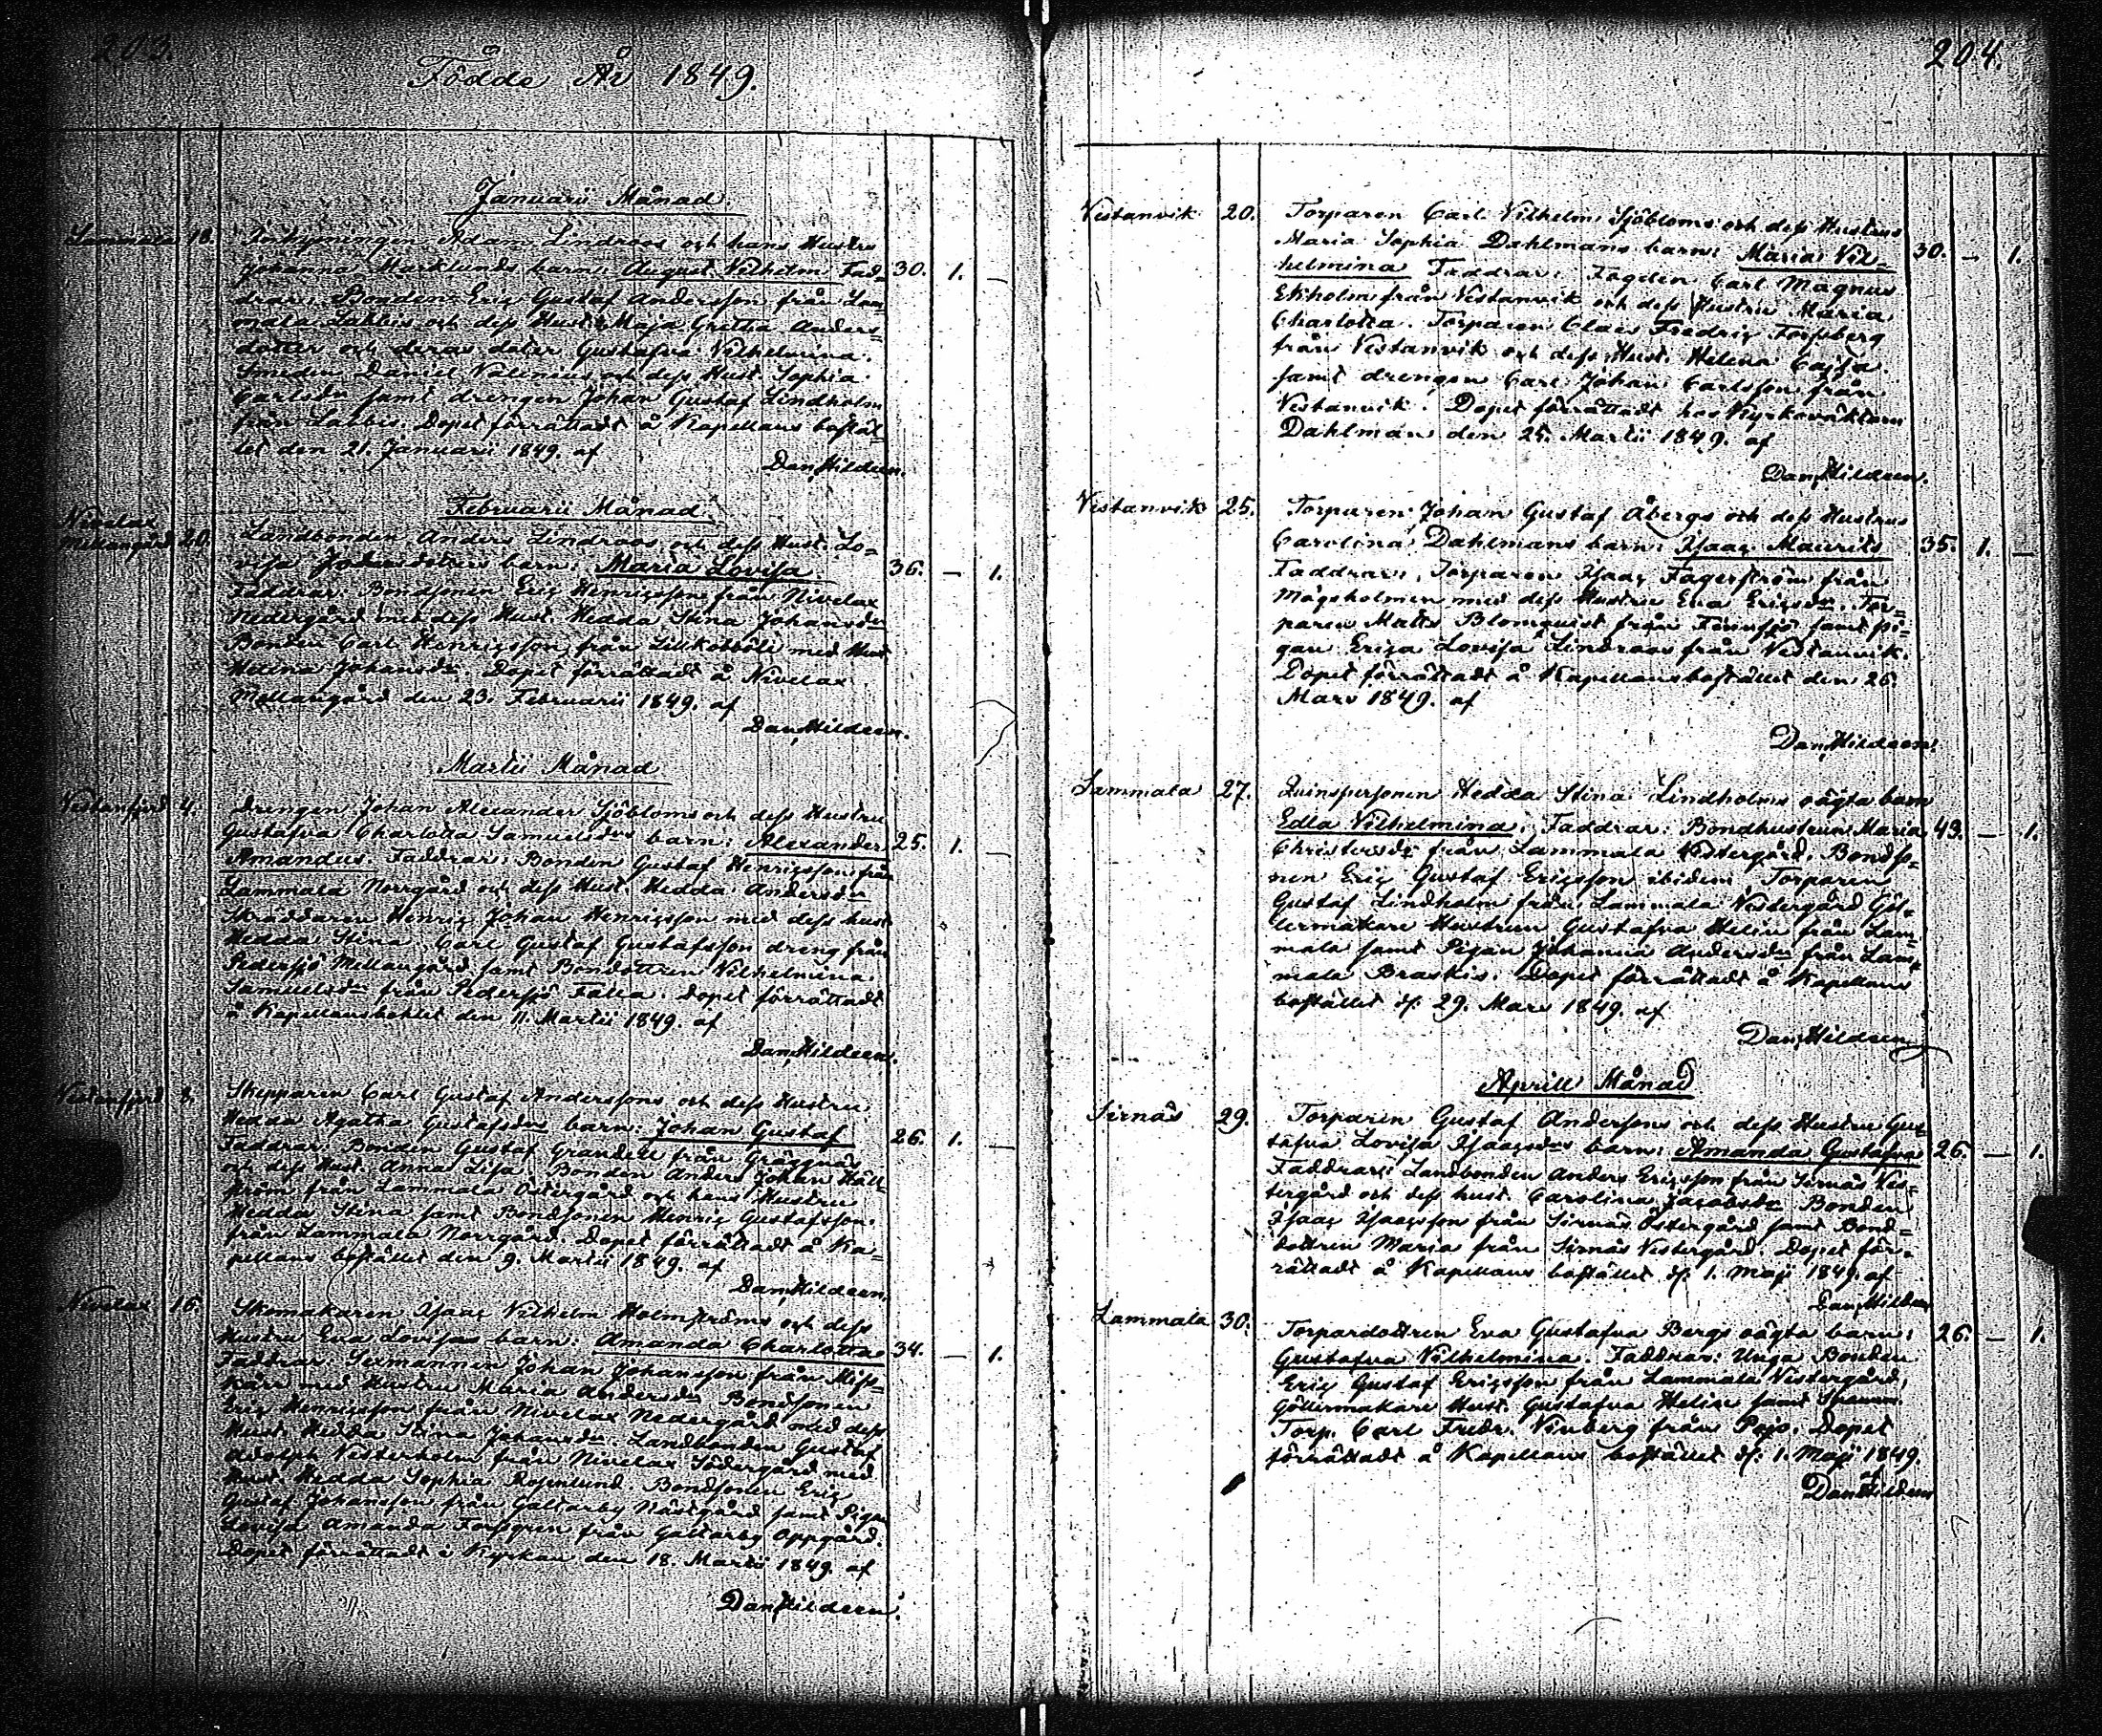 203.
Födde År 1849.
Januarii Månad.
Lammala 18. Inhysningen Adam Lindroos och hans Hustru
Johanna Marklunds barn: August Vilhelm Fad= 30. 1. —
drar: Bonden Eric Gustaf Andersson från Lam=
mala Labbis och dess Hust: Maja Gretha Anders=
dotter och deras doter Gustafva Vilhelmina.
Smeden Daniel Valenius och dess Hust. Sophia
Carlsdr samt drengen Johan Gustaf Lindholm
från Labbis. Dopet förrättadt å Kapellans bostäl=
let den 21. Januarii 1849. af
Dan. Hildeen.
Februarii Månad.
Nivelax
Mellangård 20. Landbonden Anders Lindroos och dess Hust. Lo=
visa barn: Maria Lovisa. 36. — 1.
Faddrar: Bondsonen Eric Henricsson från Nivelax
Nedergård med dess Hust. Hedda Stina Johansdr
Bonden Carl Henricsson från Lillkobböle med Hust
Helena Johansdr. Dopet förrättadt å Nivelax
Mellangård den 23. Februarii 1849. af
Dan. Hildeen.
Martii Månad
Vestanfjerd 4. Drengen Johan Alexander Sjöbloms och dess Hustru
Gustafva Charlotta Samuelsdrs barn: Alexander 25. 1. —
Amandus. Faddrar: Bonden Gustaf Henricsson från
Lammala Norrgård och dess Hust. Hedda Andersdr
Skräddaren Henric Johan Henricsson med dess hust
Hedda Stina Carl Gustaf Gustafsson dreng från
Pedersjö Mellangård samt Bondottren Vilhelmina
Samuelsdr från Pedersjö Falla. Dopet förrättadt
å Kapellansbohlet den 11. Martii 1849. af
Dan. Hildeen.
Vestanfjerd 8. Skepparen Carl Gustaf Anderssons och dess Hustru
Hedda Agatha Gustafsdrs barn: Johan Gustaf 26. 1. —
Faddrar: Bonden Gustaf Grandell från Gräggnäs
och dess Hust. Anna Lisa. Bonden Anders Johan Häll=
ström från Lammala Östergård och hans Hustru
Hedda Stina samt Bondsonen Henric Gustafsson
från Lammala Norrgård. Dopet förrättadt å Ka=
pellans bostället den 9. Martii 1849. af
Dan. Hildeen.
Nivelax 16. Skomakaren Isaac Vilhelm Holmströms och dess
Hustru Eva Lovisas barn: Amanda Charlotta 34. — 1.
Faddrar: Sexmannen Johan Johansson från Miss=
kärr med Hustru Maria Andersdr Bondsonen
Eric Henricsson från Nivelax Nedergård med dess
Hust. Hedda Stina Johansdr. Landbonden Gustaf
Adolph Vesterholm från Nivelax Södergård med
Hust. Hedda Sophia Rosenlund. Bondsonen Eric
Gustaf Johansson från Galtarby Nästgård samt Pigan
Lovisa Amanda Forsgren från Galtarby Oppgård.
Dopet förrättadt i Kyrkan den 18. Martii 1849. af
Dan. Hildeen.
204.
Vestanvik 20. Torparen Carl Vilhelm Sjöbloms och dess Hustrus
Maria Sophia Dahlmans barn: Maria Vil= 30. — 1.
helmina Faddrar: Fogden Carl Magnus
Ekholm från Vestanvik och dess Hustru Maria
Charlotta. Torparen Claes Fredric Forssberg
från Vestanvik och dess Hust. Helena Cajsa
samt drengen Carl Johan Carlsson från
Vestanvik. Dopet förrättadt hos Kyrkoväktaren
Dahlman den 25. Martii 1849. af
Dan. Hildeen.
Vestanvik 25. Torparen Johan Gustaf Åbergs och dess Hustrus
Carolina Dahlmans barn: Isaac Maurits 35. 1. —
Faddrar: Torparen Isaac Fagerström från
Mågsholmen med dess Hustru Eva Ericsdr. Tor=
paren Matts Blomquist från Finnsjö samt pi=
gan Erica Lovisa Lindroos från Vestanvik.
Dopet förrättadt å Kapellansbostället den 26.
Mars 1849. af
Dan. Hildeen.
Lammala 27. Qvinspersonen Hedda Stina Lindholms oägta barn
Edla Vilhelmina. Faddrar: Bondhustrun Maria 43. — 1.
Christersdr från Lammala Vestergård. Bondso=
nen Eric Gustaf Ericsson ibidem Torparen
Gustaf Lindholm från Lammala Vestergård Göl=
lermakare Hustrun Gustafva Helin från Lam=
mala samt Pigan Johanna Andersdr från Lam=
mala Braskis. Dopet förrättadt å Kapellans
bostället d. 29. Mars 1849. af
Dan. Hildeen
Aprill Månad
Sirnäs 29. Torparen Gustaf Anderssons och dess Hustru Gus=
tafva Lovisa Isaacsdrs barn: Amanda Gustafva 26. — 1.
Faddrar: Landbonden Anders Ericsson från Sirnäs Ves=
tergård och dess hust. Carolina Jacobsdr Bonden
Isaac Isaacsson från Sirnäs Östergård samt Bond=
dottren Maria från Sirnäs Vestergård. Dopet för=
rättadt å Kapellans bostället d. 1. Maji 1849 af
Dan. Hildeen
Lammala 30. Torpardottren Eva Gustafva Bergs oägta barn: 26. — 1.
Gustafva Vilhelmina. Faddrar: Unga Bonden
Eric Gustaf Ericsson från Lammala Vestergård,
Göllermakare Hust. Gustafva Helin samt
Torp. Carl Fredr. Vinberg från Pojo. Dopet
förrättadt å Kapellans bostället d. 1. Maji 1849.
af
Dan. Hildeen